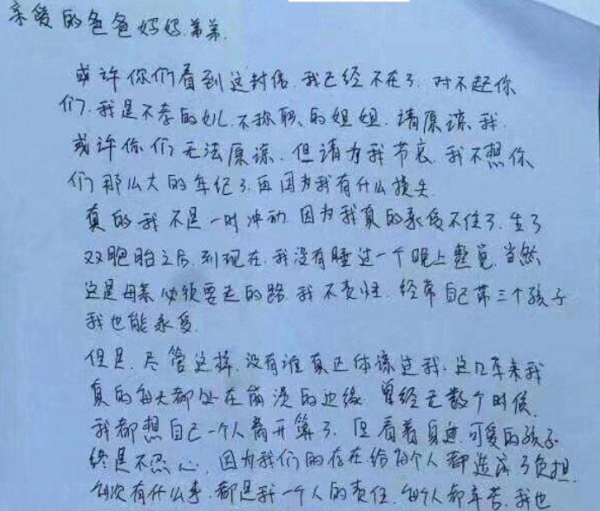 亲爱的爸爸妈妈.弟弟.
或许你们看到这封信.我已经不在了.对不起你
们.我是不孝的女儿.不称职的姐姐.请原谅我.
或许你们无法原谅.但请为我节哀.我不想你
们那么大的年纪了.再因为我有什么损失.
真的我不是一时冲动.因为我真的承受不住了.生了
双胞胎之后.到现在.我没有睡过一个晚上整觉.当然
这是母亲必须要走的路.我不责怪.经常自己带三个孩子
我也能承受.
但是.尽管这样.没有谁真正体谅过我.这几年来我
真的每天都处在崩溃的边缘.曾经无数个时候.
我都想自己一个人离开算了.但看着身边.可爱的孩子
终是不忍心.因为我们的存在给每个人都造成了负担.
每次有什么事.都是我一个人的责任.每个人都辛苦.我也